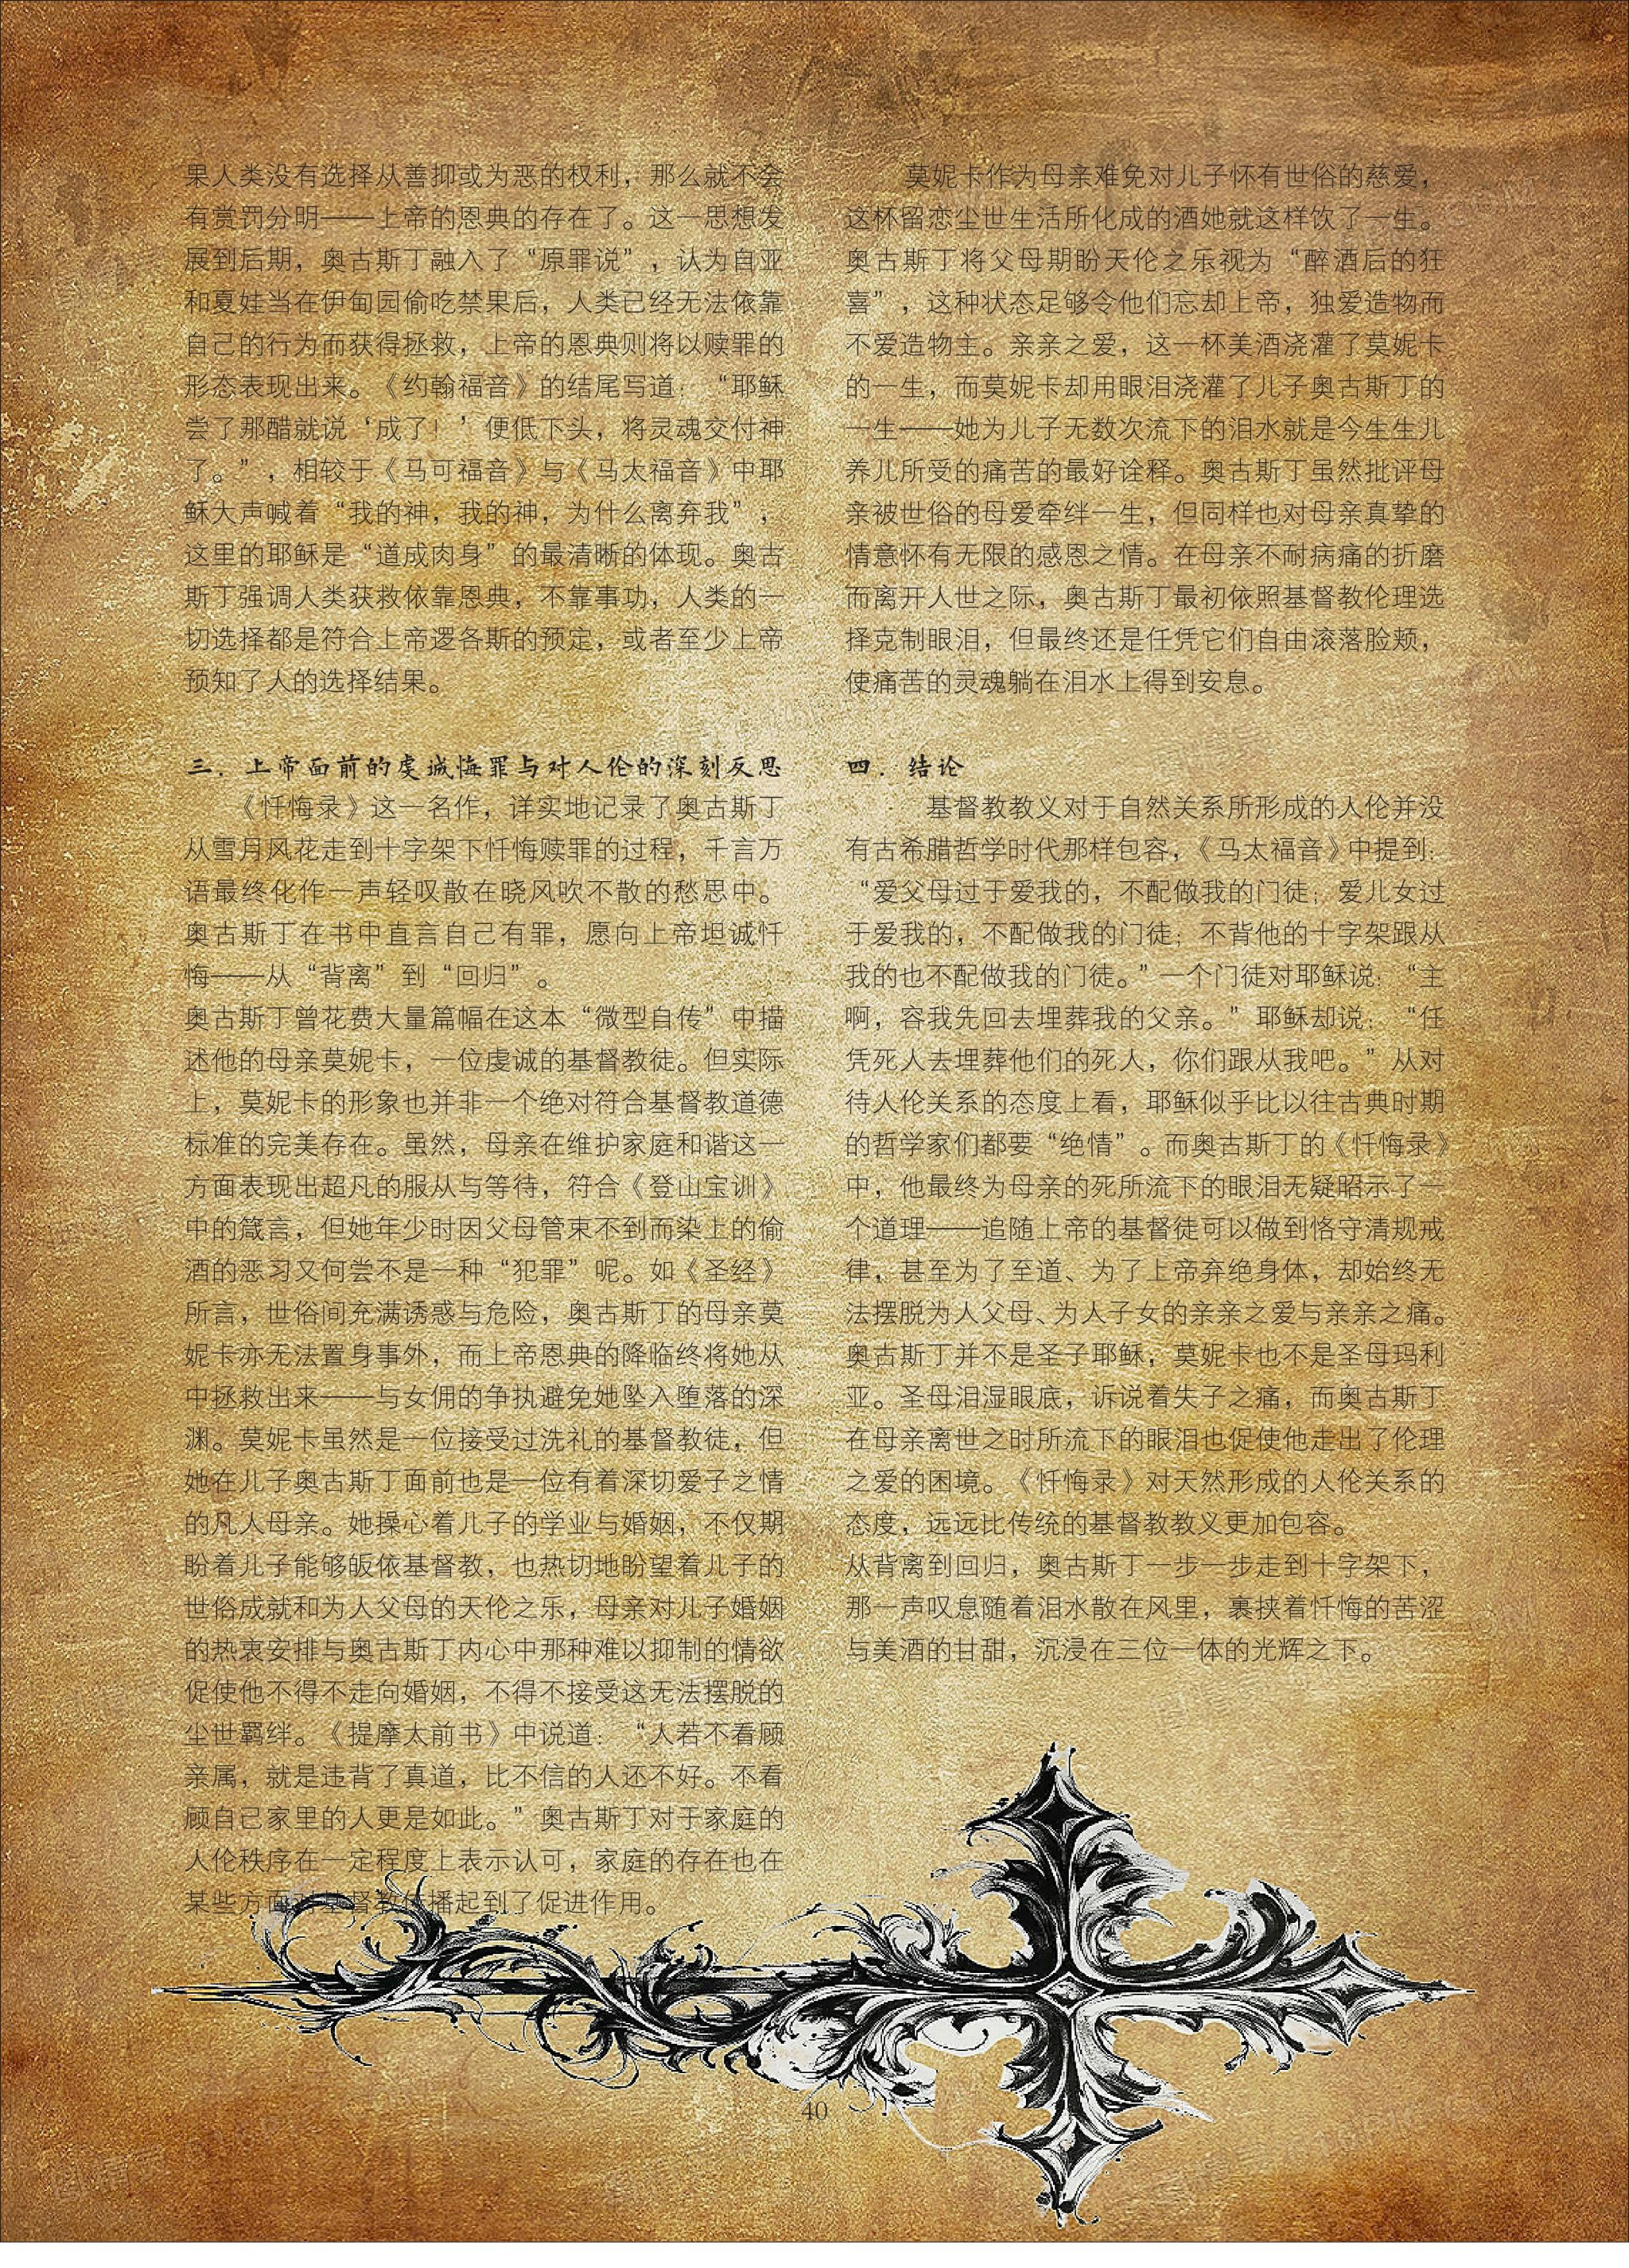 果人类没有选择从善抑或为恶的权利，那么就不会
有赏罚分明——上帝的恩典的存在了。这一思想发
展到后期，奥古斯丁融入了“原罪说”，认为自亚
和夏娃当在伊甸园偷吃禁果后，人类已经无法依靠
自己的行为而获得拯救，上帝的恩典则将以赎罪的
形态表现出来。《约翰福音》的结尾写道：“耶稣
尝了那醋就说‘成了！’便低下头，将灵魂交付神
了。”，相较于《马可福音》与《马太福音》中耶
稣大声喊着“我的神，我的神，为什么离弃我”，
这里的耶稣是“道成肉身”的最清晰的体现。奥古
斯丁强调人类获救依靠恩典，不靠事功，人类的一
切选择都是符合上帝逻各斯的预定，或者至少上帝
预知了人的选择结果。
三．上帝面前的虔诚悔罪与对人伦的深刻反思
《忏悔录》这一名作，详实地记录了奥古斯丁
从雪月风花走到十字架下忏悔赎罪的过程，千言万
语最终化作一声轻叹散在晓风吹不散的愁思中。
奥古斯丁在书中直言自己有罪，愿向上帝坦诚忏
悔——从“背离”到“回归”。
奥古斯丁曾花费大量篇幅在这本“微型自传”中描
述他的母亲莫妮卡，一位虔诚的基督教徒。但实际
上，莫妮卡的形象也并非一个绝对符合基督教道德
标准的完美存在。虽然，母亲在维护家庭和谐这一
方面表现出超凡的服从与等待，符合《登山宝训》
中的箴言，但她年少时因父母管束不到而染上的偷
酒的恶习又何尝不是一种“犯罪”呢。如《圣经》
所言，世俗间充满诱惑与危险，奥古斯丁的母亲莫
妮卡亦无法置身事外，而上帝恩典的降临终将她从
中拯救出来——与女佣的争执避免她坠入堕落的深
渊。莫妮卡虽然是一位接受过洗礼的基督教徒，但
她在儿子奥古斯丁面前也是一位有着深切爱子之情
的凡人母亲。她操心着儿子的学业与婚姻，不仅期
盼着儿子能够皈依基督教，也热切地盼望着儿子的
世俗成就和为人父母的天伦之乐，母亲对儿子婚姻
的热衷安排与奥古斯丁内心中那种难以抑制的情欲
促使他不得不走向婚姻，不得不接受这无法摆脱的
尘世羁绊。《提摩太前书》中说道：“人若不看顾
亲属，就是违背了真道，比不信的人还不好。不看
顾自己家里的人更是如此。”奥古斯丁对于家庭的
人伦秩序在一定程度上表示认可，家庭的存在也在
某些方面对基督教传播起到了促进作用。
莫妮卡作为母亲难免对儿子怀有世俗的慈爱，
这杯留恋尘世生活所化成的酒她就这样饮了一生。
奥古斯丁将父母期盼天伦之乐视为“醉酒后的狂
喜”，这种状态足够令他们忘却上帝，独爱造物而
不爱造物主。亲亲之爱，这一杯美酒浇灌了莫妮卡
的一生，而莫妮卡却用眼泪浇灌了儿子奥古斯丁的
一生——她为儿子无数次流下的泪水就是今生生儿
养儿所受的痛苦的最好诠释。奥古斯丁虽然批评母
亲被世俗的母爱牵绊一生，但同样也对母亲真挚的
情意怀有无限的感恩之情。在母亲不耐病痛的折磨
而离开人世之际，奥古斯丁最初依照基督教伦理选
择克制眼泪，但最终还是任凭它们自由滚落脸颊，
使痛苦的灵魂躺在泪水上得到安息。
四．结论
基督教教义对于自然关系所形成的人伦并没
有古希腊哲学时代那样包容，《马太福音》中提到：
“爱父母过于爱我的，不配做我的门徒；爱儿女过
于爱我的，不配做我的门徒；不背他的十字架跟从
我的也不配做我的门徒。”一个门徒对耶稣说：“主
啊，容我先回去埋葬我的父亲。”耶稣却说：“任
凭死人去埋葬他们的死人，你们跟从我吧。”从对
待人伦关系的态度上看，耶稣似乎比以往古典时期
的哲学家们都要“绝情”。而奥古斯丁的《忏悔录》
中，他最终为母亲的死所流下的眼泪无疑昭示了一
个道理——追随上帝的基督徒可以做到恪守清规戒
律，甚至为了至道、为了上帝弃绝身体，却始终无
法摆脱为人父母、为人子女的亲亲之爱与亲亲之痛。
奥古斯丁并不是圣子耶稣，莫妮卡也不是圣母玛利
亚。圣母泪湿眼底，诉说着失子之痛，而奥古斯丁
在母亲离世之时所流下的眼泪也促使他走出了伦理
之爱的困境。《忏悔录》对天然形成的人伦关系的
态度，远远比传统的基督教教义更加包容。
从背离到回归，奥古斯丁一步一步走到十字架下，
那一声叹息随着泪水散在风里，裹挟着忏悔的苦涩
与美酒的甘甜，沉浸在三位一体的光辉之下。
40